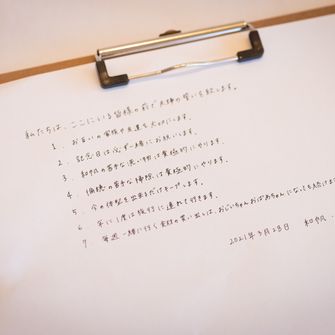 私たちは、ここにいる皆様の前で夫婦の誓いを致します。
1. お互いの家族や友達を大切にします。
2. 記念日は必ず一緒にお祝いします。
3. 和 の苦手な洗い物は積極的にやります。
4. の苦手な掃除は積極的にやります。
5. 今の体型を出来るだけキープします。
6. 年に1度は旅行に連れて行きます。
7 毎週一緒に行く食材の買い出しは、おじいちゃんおばあちゃんになっても続けます
2021年3月28日 和